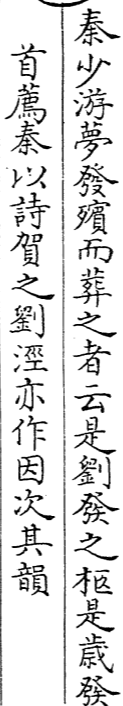 秦少游夢發殯而葬之者云是劉發之柩是歲發
首薦秦以詩賀之劉涇亦作因次其韻